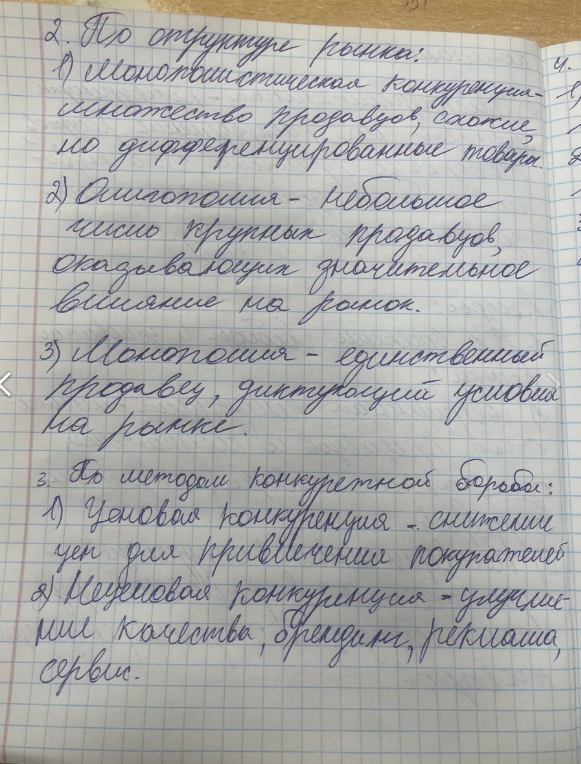 2. По структуре рынка:
1) Монополистическая конкуренция -
множество продавцов, схожие,
но дифференцированные товары.
2) Олигополия - небольшое
число крупных продавцов,
оказывающих значительное
влияние на рынок.
3) Монополия - единственный
продавец, диктующий условия
на рынке.
3. По методам конкуретной борьбы:
1) Ценовая конкуренция - снижение
цен для привлечения покупателей
2) Неценовая конкуренция - улучше-
ние качества, брендинг, реклама,
сервис.